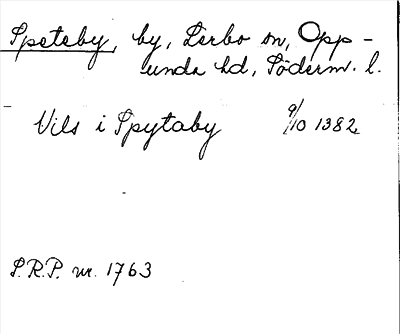 Speteby, by, Lerbo sn, Opp-
unda hd, Söderm. l.
Vils i Spytaby 9/10 1382
S.R.P. nr. 1763